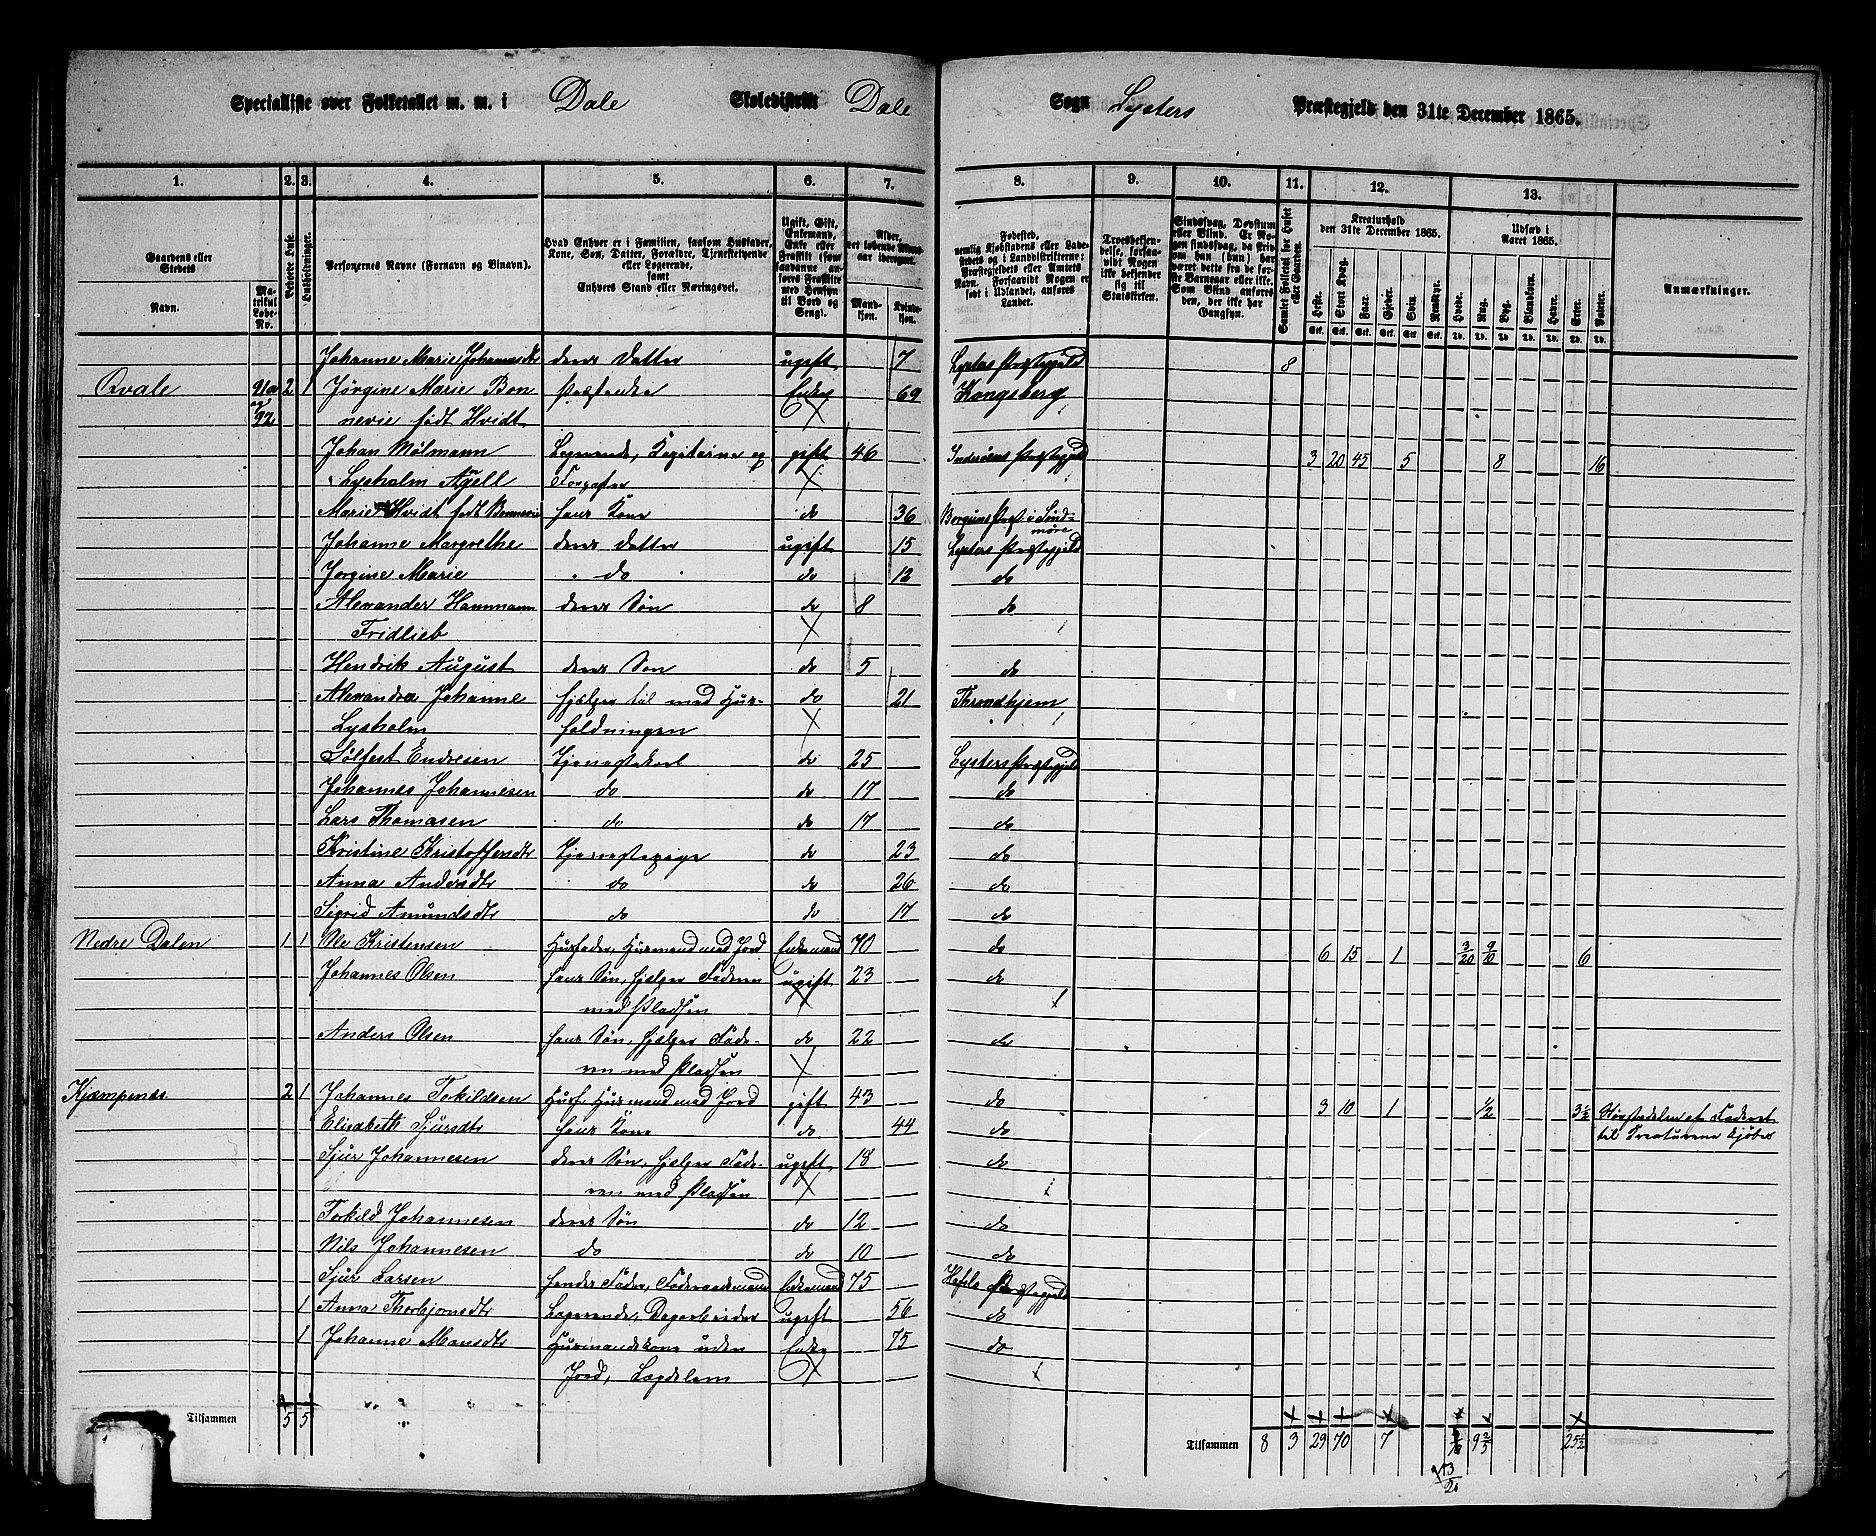 Specialliste over Folketallet m. m. i Dale Skoledistrikt Dale Sogn Lysters Præstegjeld den 31te December 1865.
1. 2. 3. 4. 5. 6. 7. 8. 9. 10. 11. 12. 13.
Gaardens eller Stedets
Navn.
Matrikul Løbe-No.
Beboede Huse.
Husholdninger.
Personernes Navne (Fornavn og Tilnavn).
Hvad Enhver er i Familien, saasom Husfader, Kone, Søn, Datter, Forældre, Tjenestetyende eller Logerende, samt Enhvers Stand eller Næringsvei.
Ugift, Gift, Enkemand, Enke eller Fraskilt (som saadanne anføres Fraskilte med Hensyn til Bord og Seng).
Alder, det løbende Aldersaar iberegnet.
Mandkjøn. Kvindekjøn.
Fødested, nemlig Kjøbstadens eller Ladestedets og i Landdistrikterne: Præstegjeldets eller Amtets Navn. Forsaavidt Nogen er født i Udlandet, anføres Landet.
Troesbekjendelse, forsaavidt Nogen ikke bekjender sig til Statskirken.
Sindssvag, Døvstum eller Blind. Er Nogen sindssvag, da skrives om han (hun) har været dette fra de første Barneaar eller ikke. Som Blind anføres den, der ikke har Gangsyn.
Samlet Folketal for Huset eller Gaarden.
Kreaturhold den 31te December 1865.
Heste. Stort Kvæg. Faar. Gjeder. Sviin. Rensdyr.
Udsæd i Aaret 1865.
Hvede. Rug. Byg. Blandkorn. Havre. Erter. Poteter.
Anmærkninger.
Johanne Marie Johannesdtr deres Datter ugift 7 Lysters Præstegjeld 8
Qvale 91a 2 1 Jørgine Marie Bon Enke 69 Kongsberg
og 92 nevie født Hvidt
Johan Mølmann Logerende, Kapitaine og gift 46 Inderøens Præstegjeld 3 20 45 5 8 16
Lysholm Agell
Marie Hvidt født Bonnevie hans Kone do 36 Borgunds Prstgj i Sønd-
møre
Johanne Margrethe deres Datter ugift 15 Lysters Præstegjeld
Jørgine Marie do do 12 do
Alexander Hammann deres Søn do 8 do
Fridlieb
Hendrik August deres Søn do 5 do
Alexandra Johanne hjelper til med Hus- do 21 Throndhjem
Lysholm holdningen
Sølfest Endresen Tjenestekarl do 25 Lysters Præstegjeld
Johannes Johannesen do do 17 do
Lars Thomasen do do 17 do
Kristine Kristoffersdtr Tjenestepige do 23 do
Anna Andersdtr do do 26 do
Sigrid Amundsdtr do do 17 do
Nedre Dalen 1 1 Ole Kristensen Husfader, Husmand med Jord Enkemand 70 do 6 15 1 3/20 9/10 6
Johannes Olsen hans Søn, hjelper Faderen ugift 23 do
med Pladsen
Anders Olsen hans Søn, hjelper Fade- do 22 do
ren med Pladsen
Kjæmpenæs 2 1 Johannes Torkildsen Husf. Husmand med Jord gift 43 do 3 10 1 1/2 3 1/2 Høstedelen af Foderet
til Kreaturene kjøbes
Elisabeth Sjursdtr hans Kone do 44 do
Sjur Johannesen deres Søn, hjelper Fade- ugift 18 do
ren med Pladsen
Torkild Johannesen deres Søn do 12 do
Nils Johannesen do do 10 do
Sjur Larsen hendes Fader, Føderaadsmand Enkemand 75 Hafslo Præstegjeld
1 Anna Thorbjørnsdtr Logerende, Dagarbeider ugift 56 do
1 Johanne Monsdtr Husmandskone uden Enke 75 do
Jord, Lægdslem
Tilsammen 5 5
Tilsammen 8 3 29 70 7 9 2/5 25 1/2